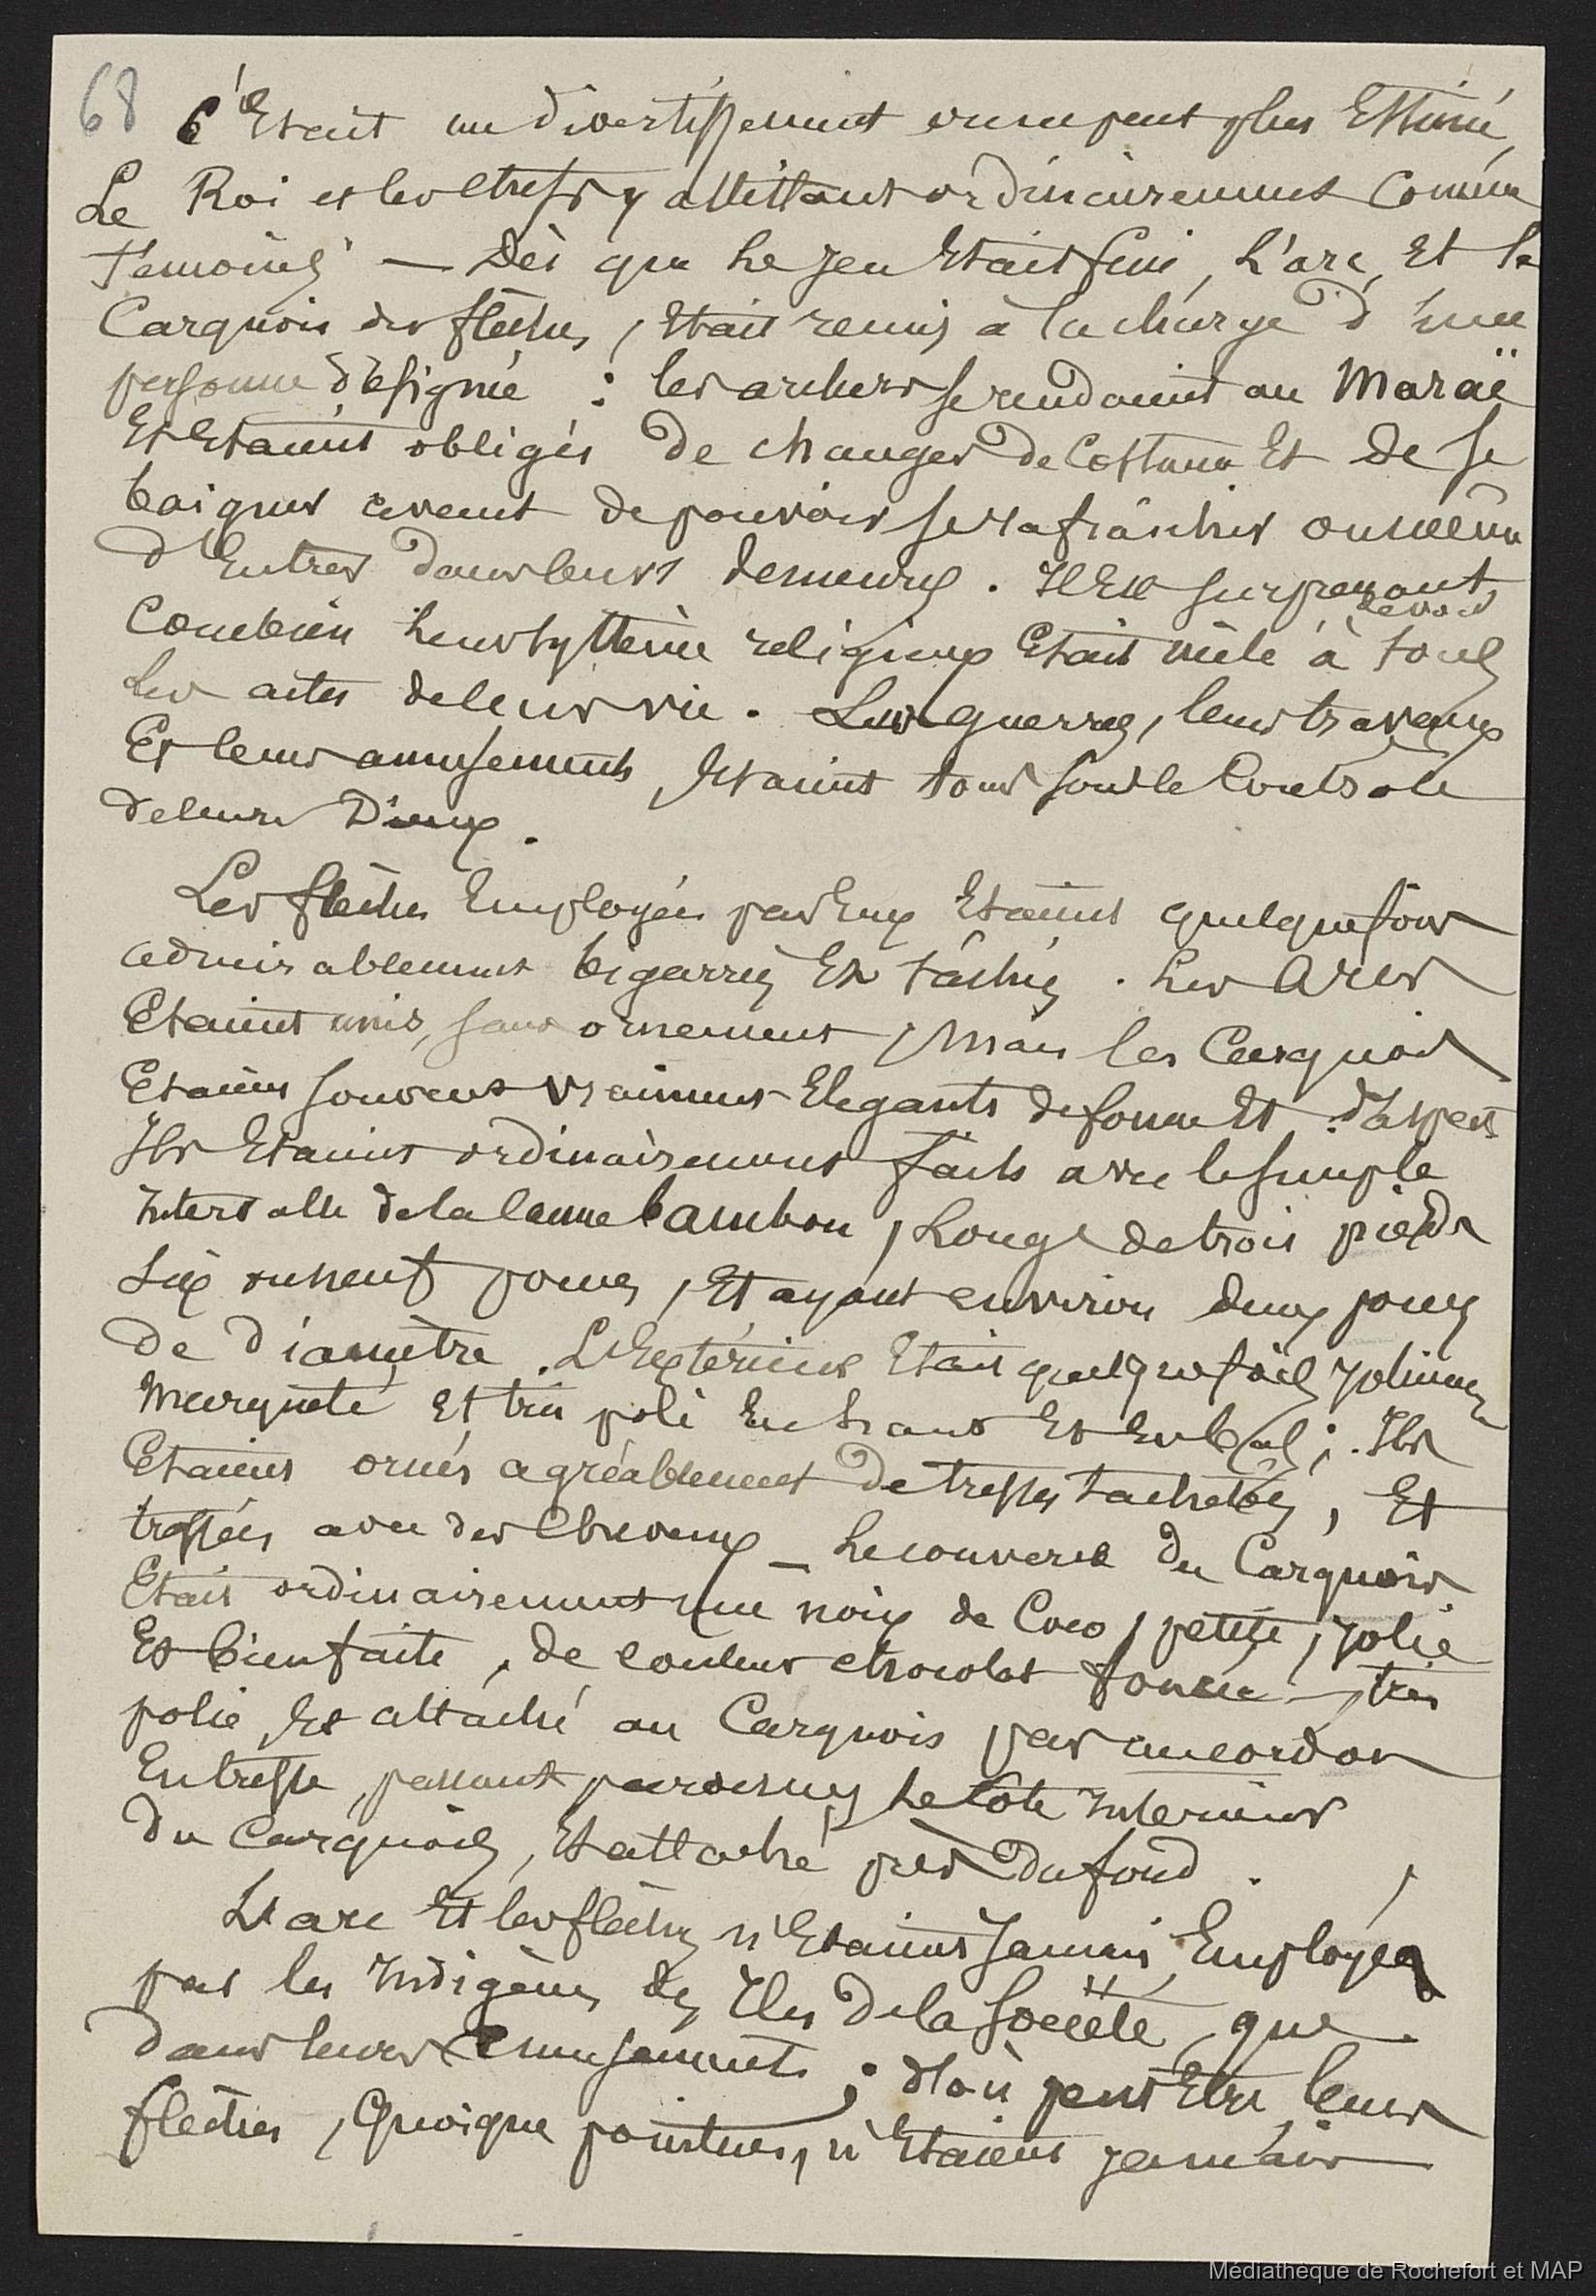 68
C'Etait un divertissement on ne peut plus Estimé,
Le Roi et les chefs y assistant ordinairement Comme
témoins — Dès que Le jeu Etait fini, L'arc, Et le
Carquois des flèches, Etait remis à la charge d'une
personne désignée : les archers se rendaient au Maraë
Et Etaient obligés de changer de Costume Et de se
baigner avant de pouvoir se rafraîchir ou même
d'Entrer dans leurs demeures. Il Est surprenant,
de voir
Combien leur système religieux Etait mêlé à tous
Les actes de leur vie. Leurs guerres, leurs travaux
Et leurs amusements, Etaient tous sous le Contrôle
de leurs Dieux.
Les flèches Employées par Eux Etaient quelquefois
admirablement bigarrées Et tachées. Les Arcs
Etaient unis, sans ornement, Mais les Carquois
Etaient souvent vraiment Elegants de forme Et d'aspect
Ils Etaient ordinairement faits avec le simple
Intervalle de la Canne bambou, Longs de trois pieds
Six ou neuf pouces, Et ayant environ deux pouces
de diamètre. L'Extérieur Etait quelquefois joliment
Marqueté Et très poli En haut Et En bas ; Ils
Etaient ornés agréablement de tresses tachetées, Et
tressées avec des Cheveux — Le couvercle du Carquois
Etait ordinairement une noix de Coco, petite, jolie
Et bien faite, de couleur chocolat foncée — très
polie, Et attaché au Carquois par un cordon
En tresse, passant par dessus Le Coté Interieur
du Carquois, Et attaché près du fond.
L'arc Et les flèches n'Etaient Jamais Employés
par les Indigènes des Iles de la Société, que
dans leurs amusements ; d'où peut Etre leurs
flèches, Quoique pointues, n'Etaient jamais
Médiathèque de Rochefort et MAP